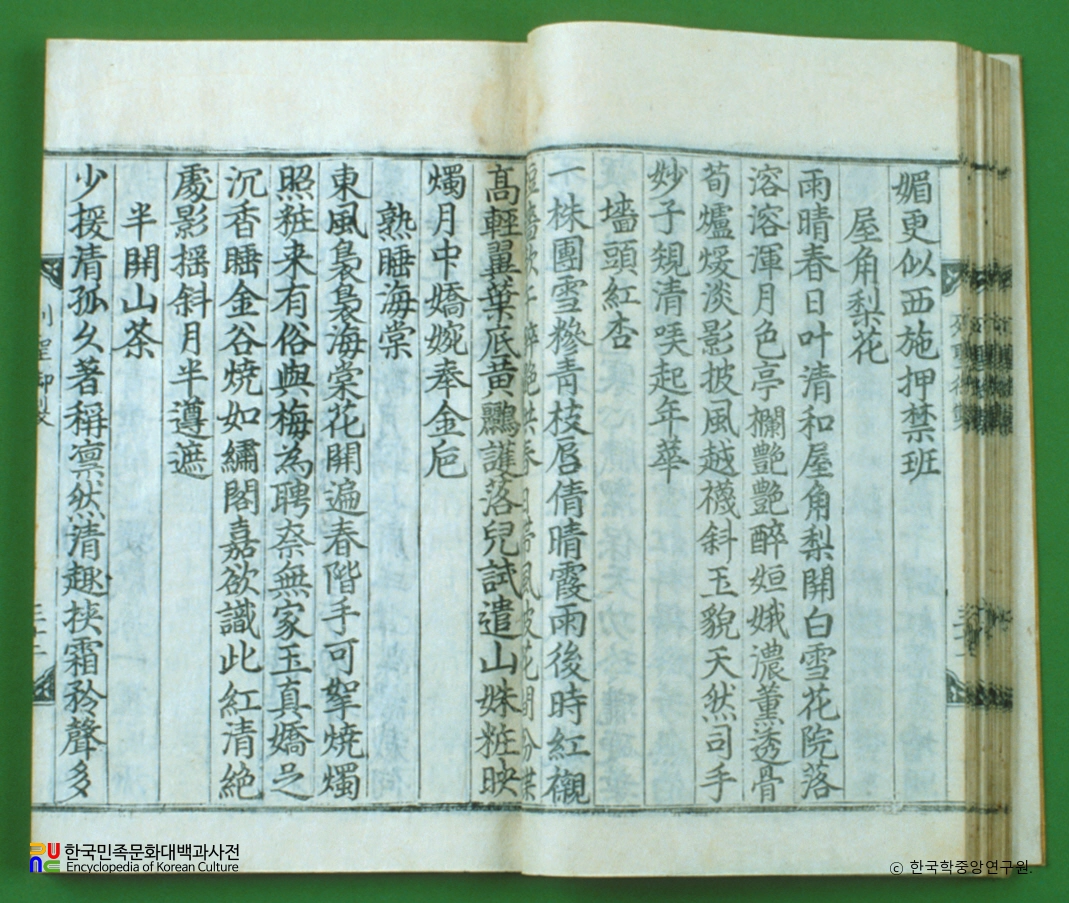 媚更似西施押禁班
屋角梨花
雨晴春日叶清和屋角梨開白雪花院落
溶溶渾月色亭欄艷艷醉姮娥濃薰透骨
荀爐煖淡影披風越襪斜玉貌天然司手
妙子規清唳起年華
墻頭紅杏
一株團雪糝青枝唇倩晴霞雨後時紅襯
高輕翼葉底黃鸝護落兒試遣山姝粧映
燭月中嬌婉奉金巵
熟睡海棠
東風裊裊海棠花開遍春階手可挐燒燭
照粧来有俗與梅為聘奈無家玉真嬌足
沉香睡金谷燒如繡閣嘉欲識此紅清絶
處影搖斜月半遵遮
半開山茶
少援清孤幺著稱凛然清趣挾霜矜聲多
한국민족문화대백과사전
Encyclopedia of Korean Culture
© 한국학중앙연구원.